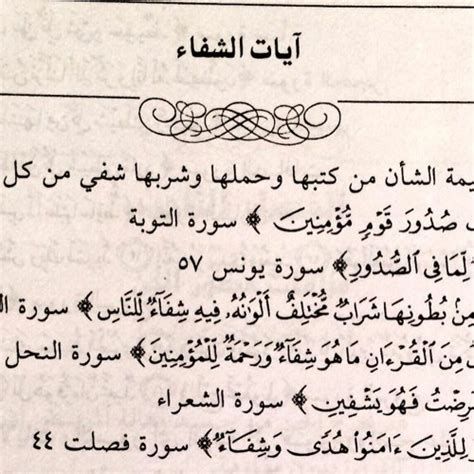 آيات الشفاء
يمة الشأن من كتبها وحملها وشربها شفي من كل
صُدُورَ قَوْمٍ مُّؤْمِنِينَ ﴾ سورة التوبة
لِّمَا فِي الصُّدُورِ ﴾ سورة يونس ٥٧
مِنْ بُطُونِهَا شَرَابٌ مُّخْتَلِفٌ أَلْوَانُهُ فِيهِ شِفَاءٌ لِّلنَّاسِ ﴾ سورة
مِنَ الْقُرْءَانِ مَا هُوَ شِفَاءٌ وَرَحْمَةٌ لِّلْمُؤْمِنِينَ ﴾ سورة النحل
رِضْتُ فَهُوَ يَشْفِينِ ﴾ سورة الشعراء
لِلَّذِينَ ءَامَنُوا هُدًى وَشِفَاءٌ ﴾ سورة فصلت ٤٤